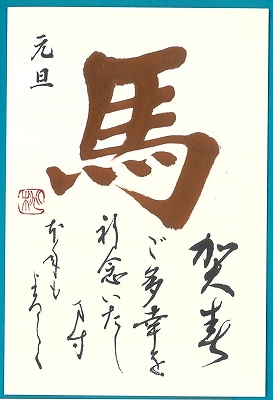 馬
賀春
ご多幸を
祈念いたし
ます
本年も
よろしく
元旦